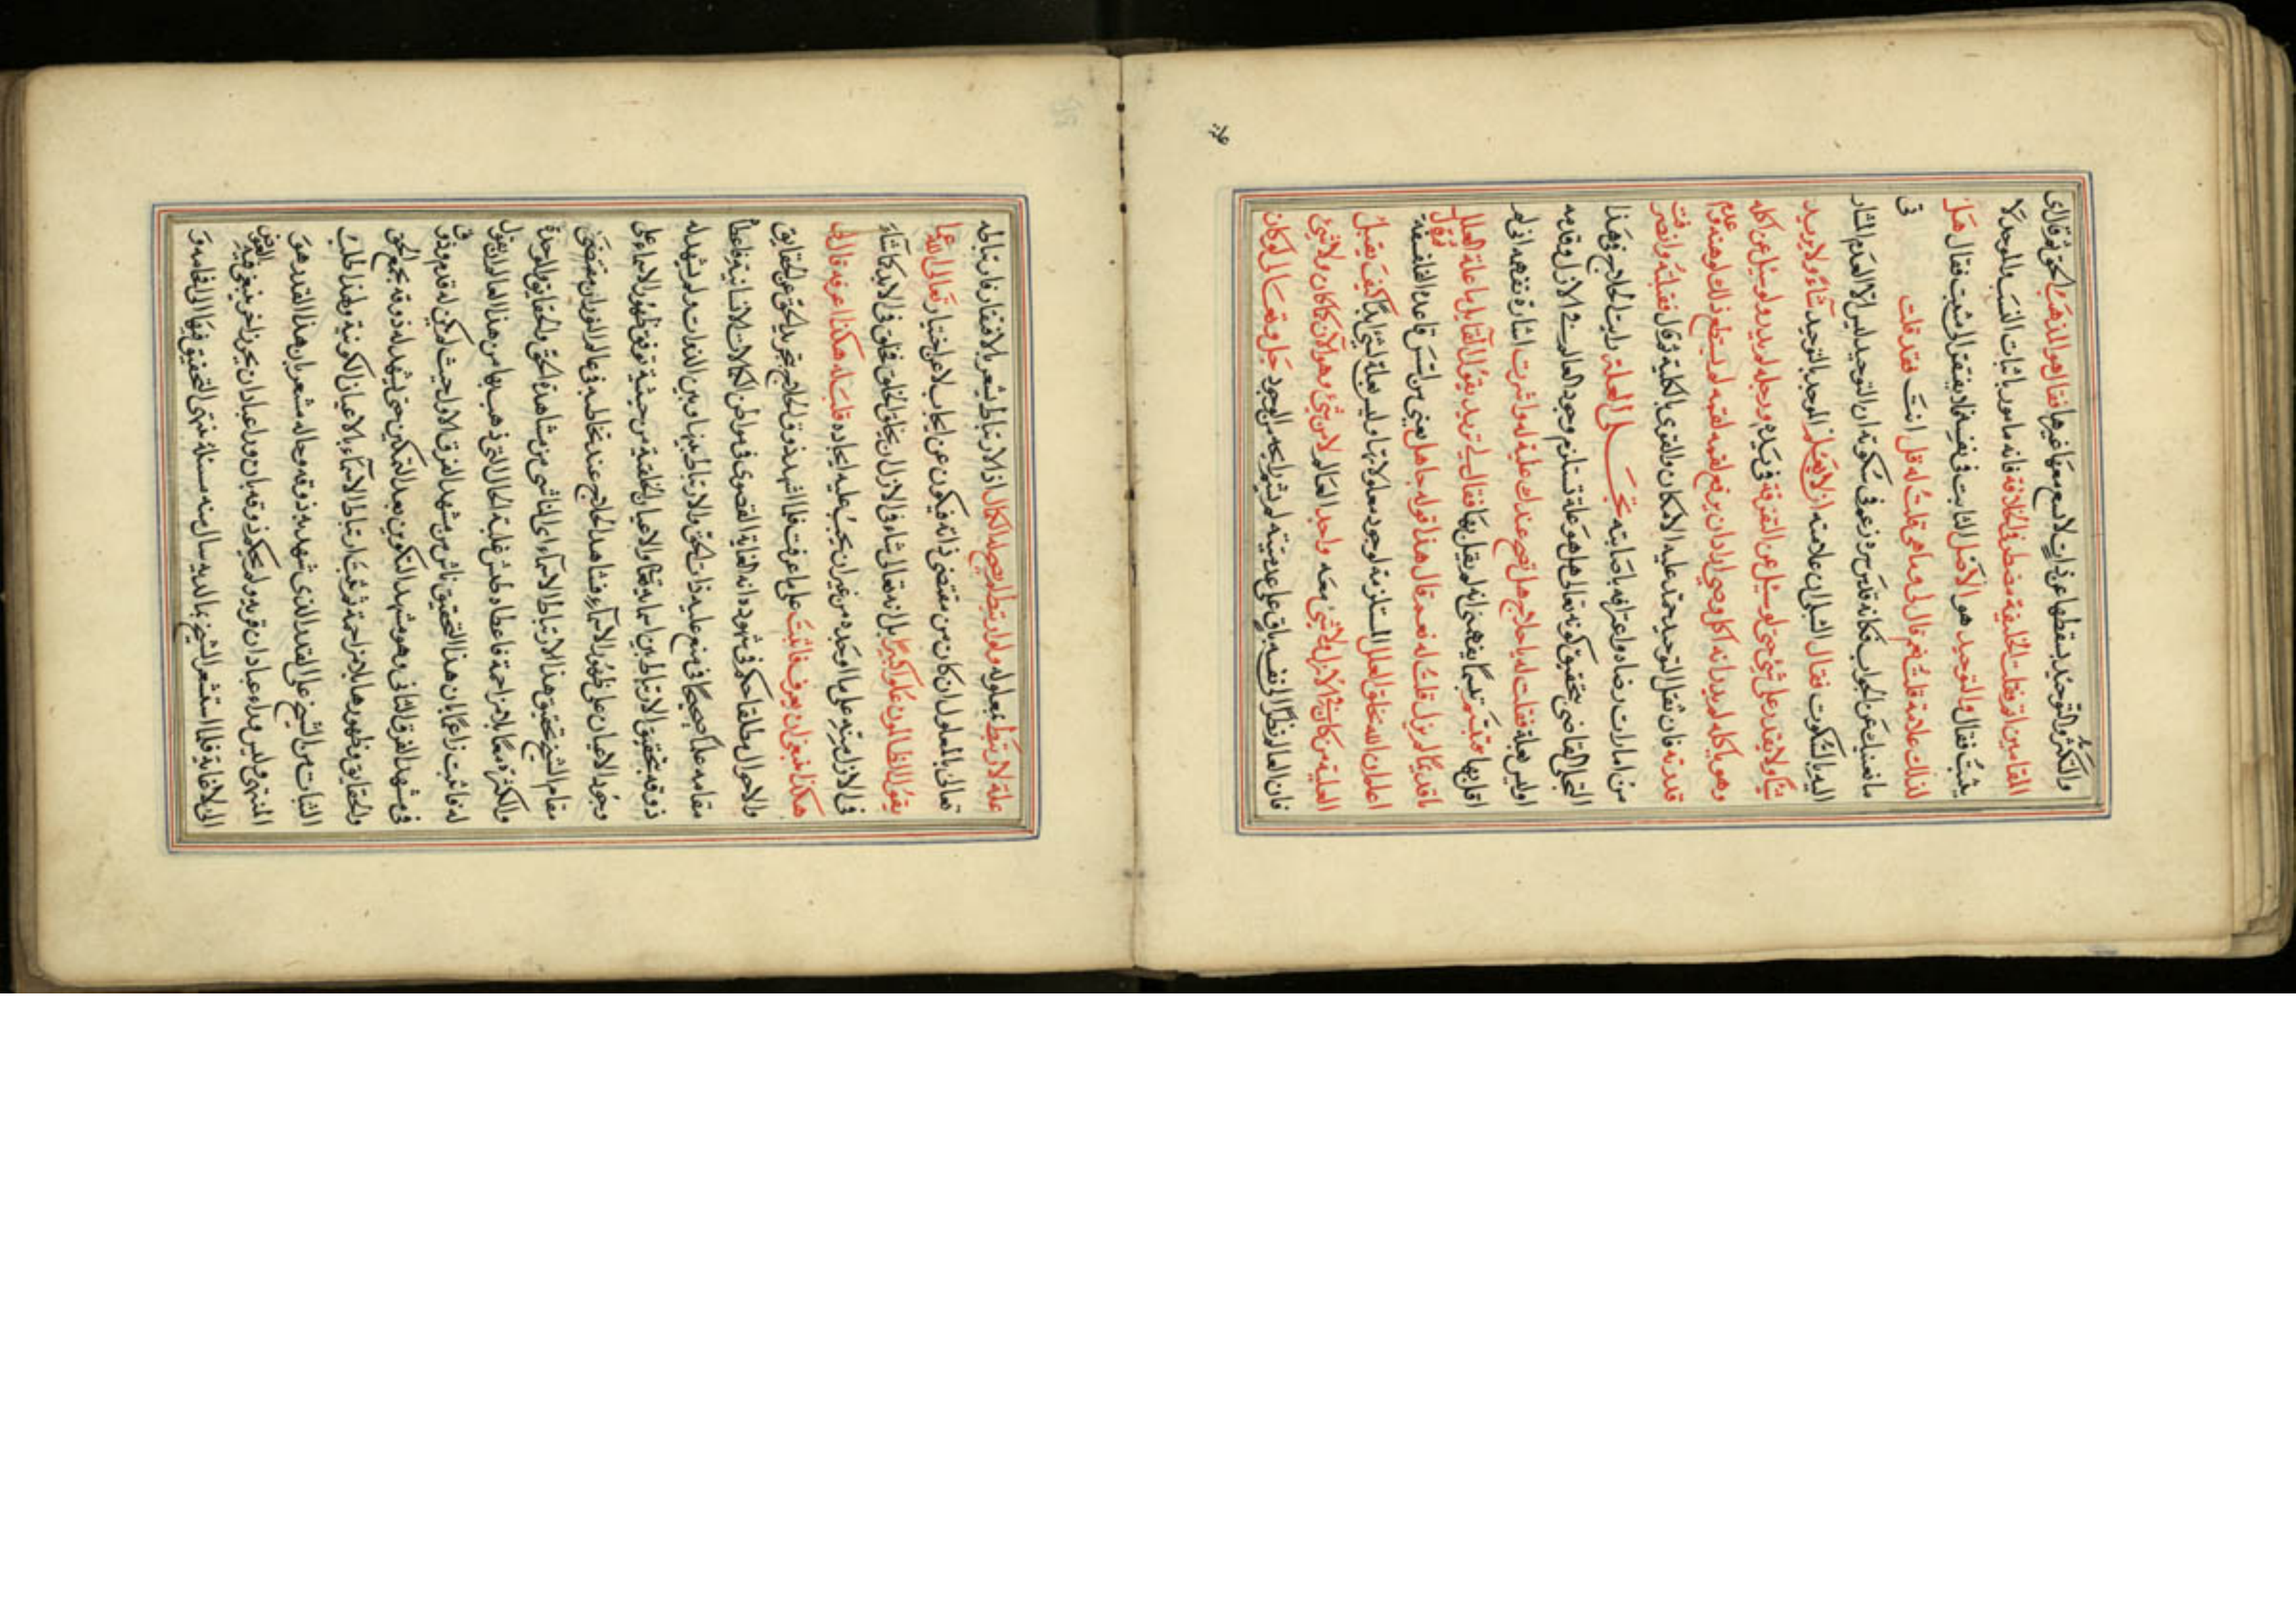 والتكثر والتوحيد يسقطها عن ذات لا تسع معها غيرها فقال هو المذهب الحق
المقامين فى ظلمت الخليفة مضطر فى الخلافة فانه مامور باثبات النسب والموحد لا
يثبت فقال والتوحيد هو الاصل الثابت فى نفسه فلا يفتقر الى مثبت فقال هل
لذلك علامة قلت نعم قال لى وما هى قلت له قل انت فقد قلت
ما اغنيك عن الجواب فكانه قدس سره زعم فى سكوته ان التوحيد ليس الا العدم المشار
اليه بالسكوت فقال الشبلى ان علامته ان لا يعلم الموحد بالتوحيد شاء ولا يريد
شيئا ولا يقدر على شئ حتى لو سئل عن التفرقة فى يديه ورجله لم يدر ولو سئل عن اكله
وهو ياكله لم يدر انه اكل وحتى لو اراد ان يرفع لقمه لفمه لم يستطع ذلك لوهنه وعدم
قدرته فان ثقل التوحيد حمته عليه الامكان والقوى بالكلية وقال فقبلته وانصرفت
من امارات رضاه واعترافه باصابته تجلى العلة رايت الحلاج فى هذا
التجلى القاضى بتحقيق كونه تعالى هل هو علة تستلزم وجود العالم فى الازل وقدمه
او ليس بعلة فقلت له يا حلاج هل تصح عندك علية له واشرت اشارة تفهمه انى لم
اقل بها فتبسم تبسما يفهمنى انه لم يقل بها فقال لى تريد بقول القايل يا علة العلل
يا قديما لم يزل قلت له نعم قال هذا قولة جاهل يعنى من اسس قاعدة الفلسفة
اعلم ان الله خلق العلل المستلزمة لوجود معلولاتها وليس بعلة لشئ ابدا كيف يقبل
العلية من كان فى الازل ولا شئ معه واوجد العالم لا من شئ وهو الآن كما كان ولا شئ
فان العالم نظرا الى نفسه باق على عدميته لم يشم رايحة من الوجود جل وتعالى لو كان
علة
علة لا ارتبط بمعلوله ولو ارتبط لم يصح له الكمال اذ الارتباط يشعر بالافتقار فارتباطه
تعالى بالمعلول ان كان من مقتضى ذاته فيكون عن ايجاب لا عن اختيار تعالى الله عما
يقول الظالمون علوا كبيرا بل انه تعالى شاء فى الازل ان يخلق الخلق فخلق فى الابد كما شاء
فى الازل مرتبه على ما اوجده من غير ان يجب عليه ايجاده قلت له هكذا اعرفه قال لى
هكذا ينبغى ان يعرف فاثبت على ما عرفت فلما شهد ذوق الحلاج تجريد الحق عن الحقايق
والاحوال مطلقا حكم فى شهوده انه الغاية القصوى فى مواطن الكمالات الانسانية فاعطا
مقامه علما صحيحا فى منع علية ذات الحق والارتباط بينها وبين الذوات ولم يشهد له
ذوقه بتحقيق الارتباط بين اسمايه تعالى والاعيان الخلقية من حيثية توقف ظهور الاسماء على
وجود الاعيان على ظهور الاسماء فشاهد الحلاج عند تخاطبه فى عالم النور ان مقتضى
مقام الشيخ تحقيق هذا الارتباط الاسمائى الناشى من مشاهدة الحق والحقايق والوحدة
والكثرة معا بلا مزاحمة فاعطاه طيش غلبة الحال التى ذهب بها من هذا العالم ان يقول
له فاثبت زاعما بان هذا التحقيق ناش من مشهد الفرق الاول حيث لم يكن له قدم وذوق
فى مشهد الفرق الثانى وهو مشهد التكوين بعد التمكين حتى يشهد له ذوقه بجمع الحق
والحقايق وظهورها بلا مزاحمة وثبت ارتباط الاسماء بالاعيان الكونية ولهذا طلب
الثبات من الشيخ على القدر الذى شهد به ذوقه وحاله مشعرا بان هذا القدر هو
المنتهى وليس وراء عبادان قرية ولم يحكم ذوقه بان وراء عبادان بحر زاخر ينتهى فيه الغرض
الى لا غاية فلما استشعر الشيخ بما لديه سال منه مسئلة ينتهى التحقيق فيها الى اقامة